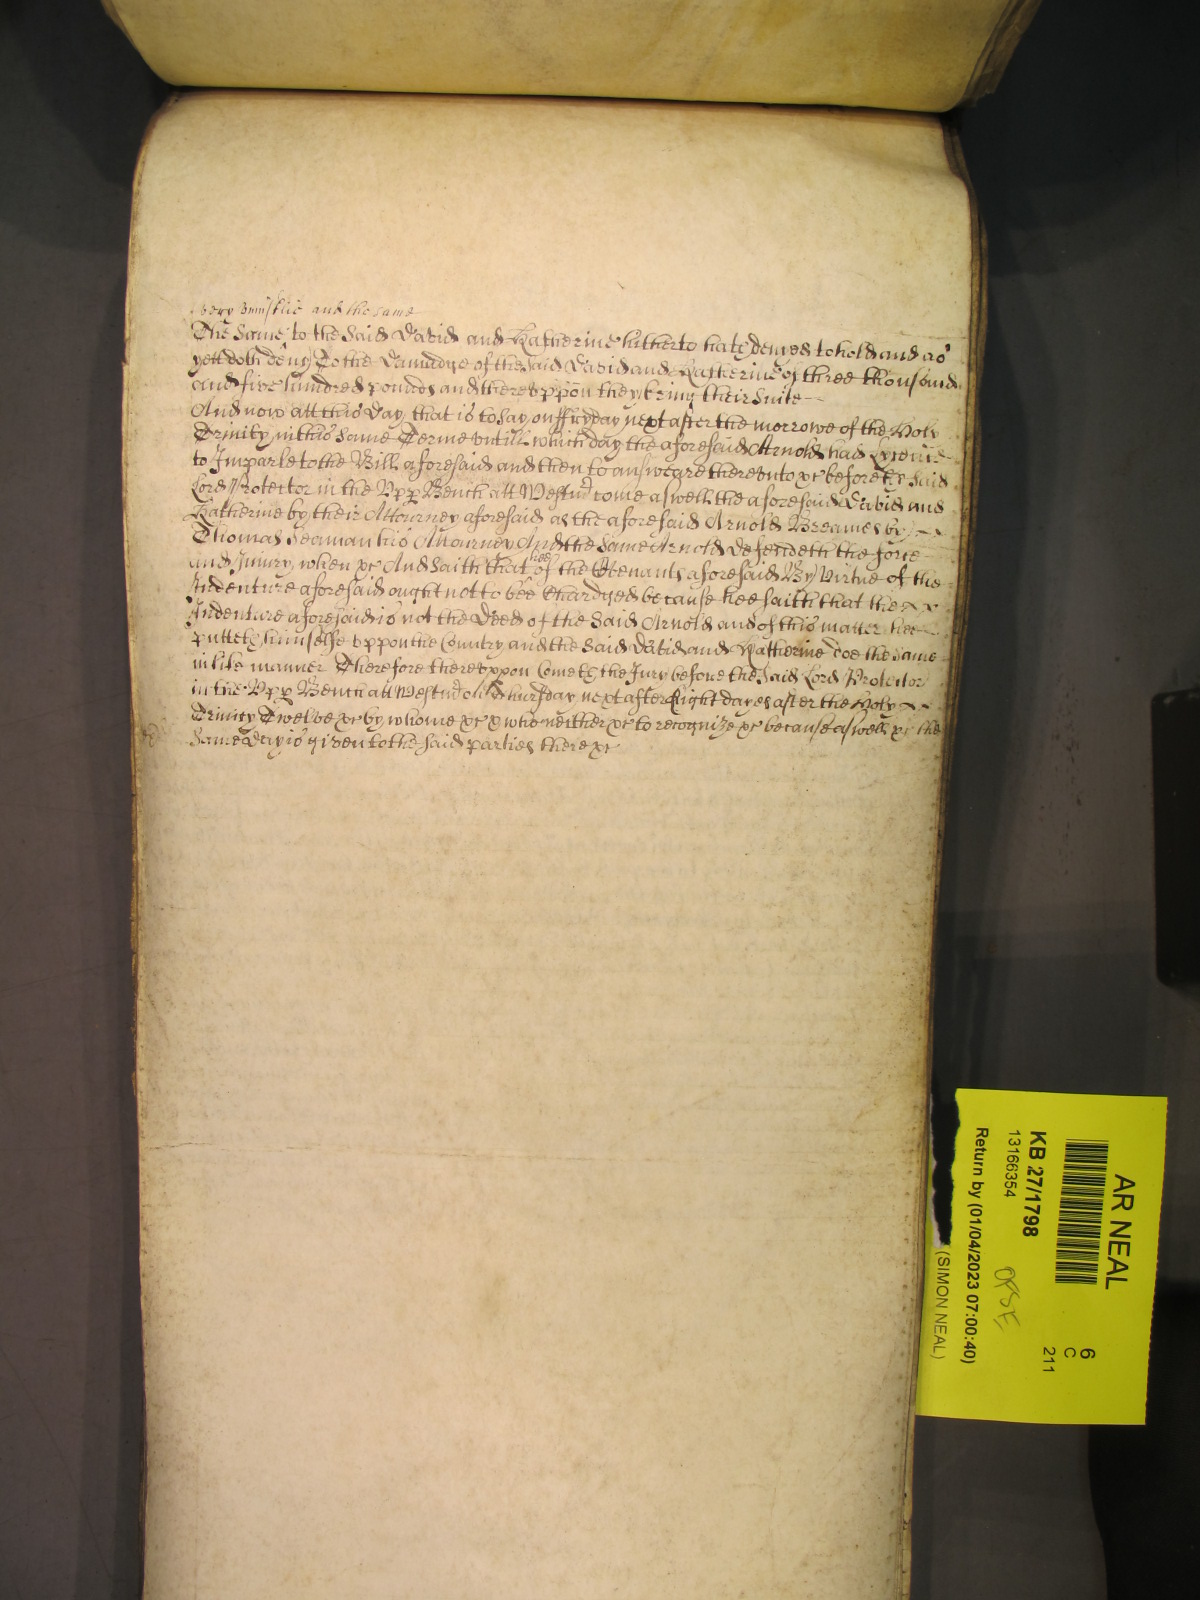 and the same
The same to the said David and Katherine hitherto hath denyed to hold and as
yett doth deny To the Damadge of the said David and Katherine of three thousand
and five hundred pounds and thereuppon they bring their suite
And now att this day that is to say on ffryday next after the morrowe of the Holy
Trinity in this same Terme untill which day the aforesaid Arnold had Lycence
to Imparle to the Bill aforesaid and then to answeare thereunto &c before the said
Lord Protector in the Upp Bench att Westmr come aswell the aforesaid David and
Katherine by their Attourney aforesaid as the aforesaid Arnold Breames by
Thomas Seaman his Attourney And the same Arnold defendeth the force
and Iniury when &c And saith that hee of the Covenants aforesaid By Virtue of the
Indenture aforesaid ought not to bee Chardged because hee saith that the
Indenture aforesaid is not the Deed of the said Arnold and of this matter hee
putteth himselfe uppon the Country and the said David and Katherine doe the same
in like manner Therefore thereuppon Cometh the Jury before the said Lord Protector
in the Upp Bench att Westmr on Thursday next after Eight dayes after the Holy
Trinity Twelve &c by whome &c & who neither &c to recognize &c because aswell &c the
same day is given to the said parties there &c
AR NEAL
6
C
211
KB 27/1798
13166354
Return by (01/04/2023 07:00:40)
(SIMON NEAL)